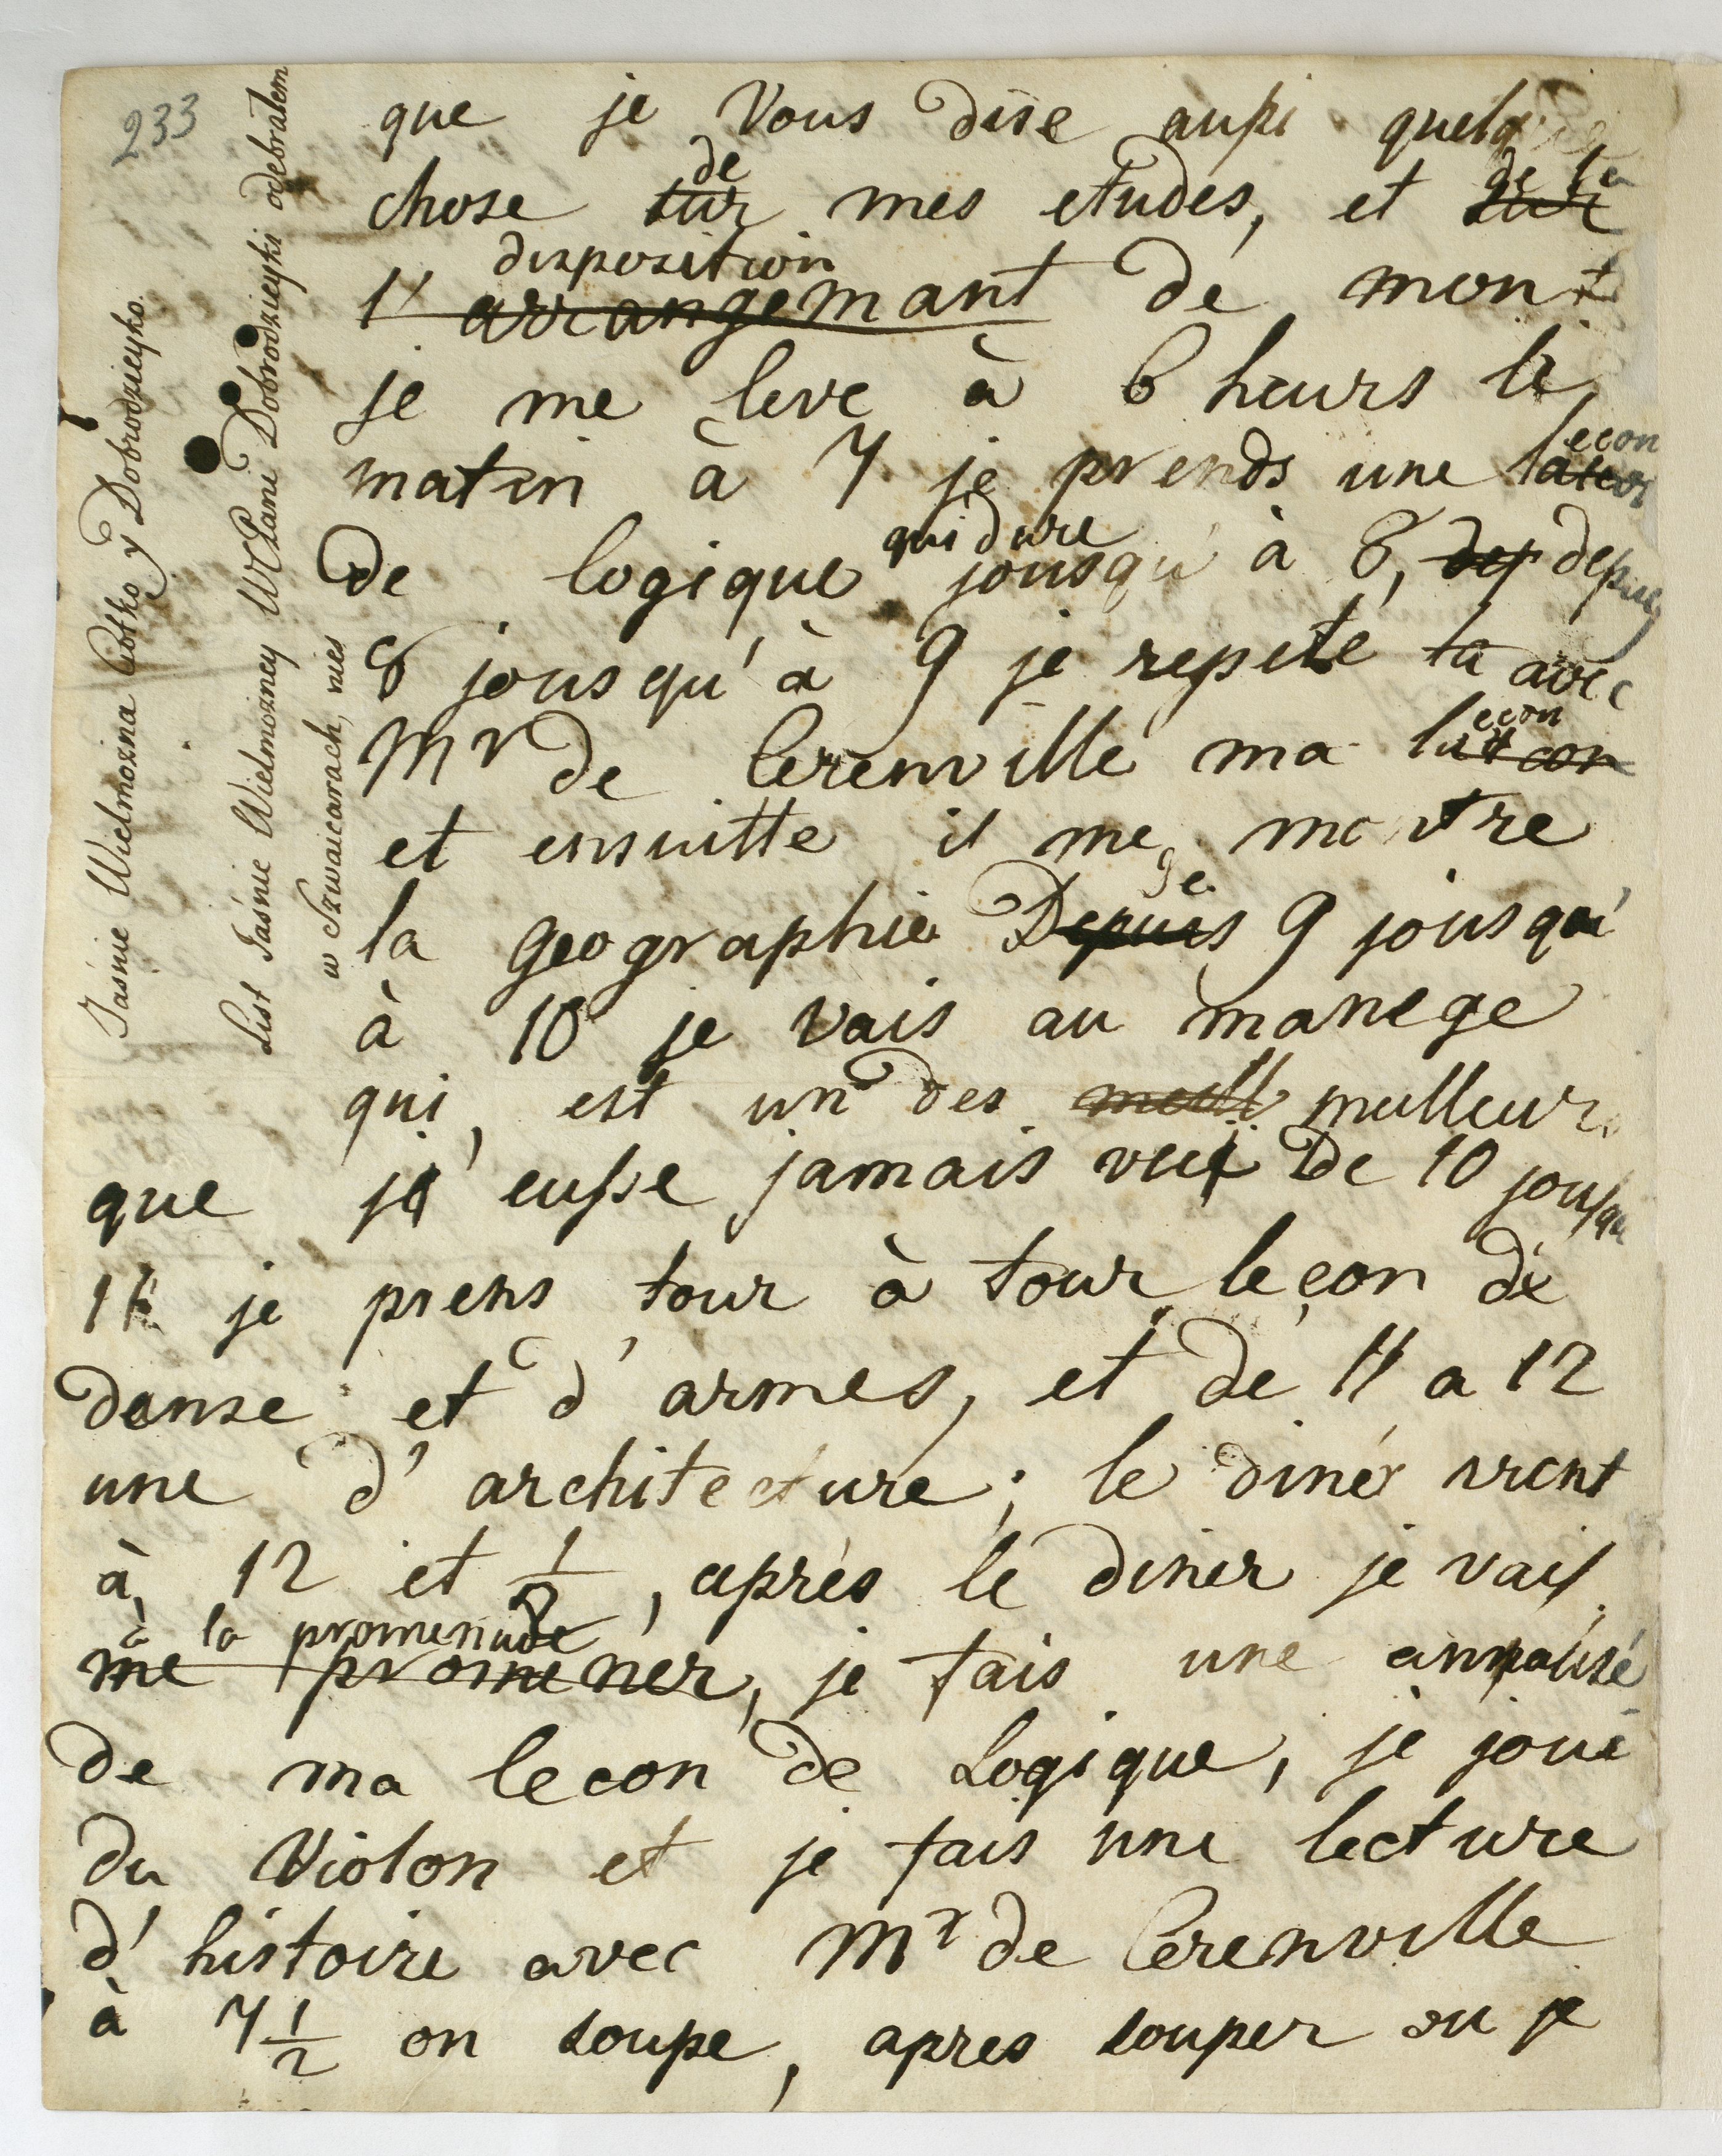 233
que je Vous dise aussi quelq
chose sur de mes etudes, et sur de la
l' arrangemant disposition de mon t
je me leve à 6 heurs le
matin à 7 je prends une lecon
de logique qui dure jousqu' à 8, dep depuis
8 jousqu'à 9 je repete la avec
Mr de Cerenville ma lecon
et ensuitte il me montre
la geographie Depuis de 9 jousqu'
à 10 je vais au manege
qui, est un des meill meilleur
que j' eusse jamais veu De 10 jousqu
11 je prens tour à tour leçon de
danse et d' armes, et de 11 a 12
une d' architecture; le diner vient
à 12 et 1/2, après le diner je vais
me promener à la promenade, je fais une annalisé
de ma lecon de Logique, je joue
du Violon et je fais une lecture
d' histoire avec Mr de Cerenville
à 7 1/2 on soupe, apres souper ou je
Jaśnie Wielmożna Ciotko y Dobrodzieyko.
List Jaśnie Wielmożney WPani Dobrodzieyki odebrałem
w Szwaicarach, nies